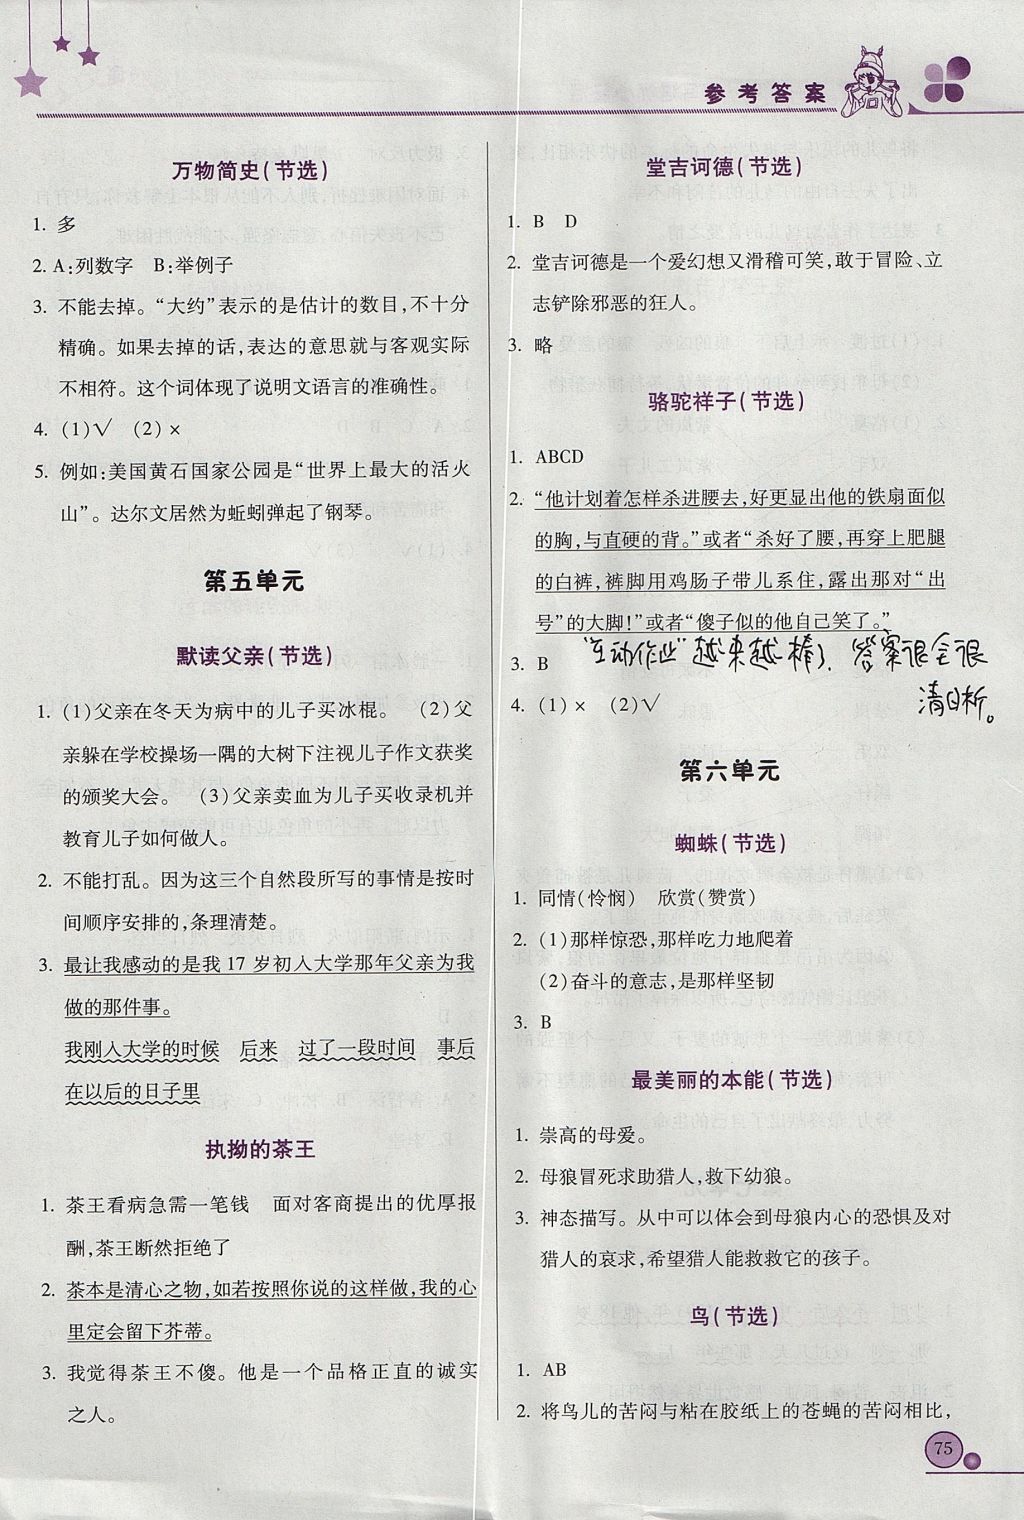 参考答案
万物简史(节选)
1. 多
2. A:列数字 B:举例子
3. 不能去掉。“大约”表示的是估计的数目,不十分
精确。如果去掉的话,表达的意思就与客观实际
不相符。这个词体现了说明文语言的准确性。
4. (1)√ (2)×
5. 例如:美国黄石国家公园是“世界上最大的活火
山”。达尔文居然为蚯蚓弹起了钢琴。
第五单元
默读父亲(节选)
1. (1)父亲在冬天为病中的儿子买冰棍。 (2)父
亲躲在学校操场一隅的大树下注视儿子作文获奖
的颁奖大会。 (3)父亲卖血为儿子买收录机并
教育儿子如何做人。
2. 不能打乱。因为这三个自然段所写的事情是按时
间顺序安排的,条理清楚。
3. 最让我感动的是我 17 岁初入大学那年父亲为我
做的那件事。
我刚入大学的时候 后来 过了一段时间 事后
在以后的日子里
执拗的茶王
1. 茶王看病急需一笔钱 面对客商提出的优厚报
酬,茶王断然拒绝了
2. 茶本是清心之物,如若按照你说的这样做,我的心
里定会留下芥蒂。
3. 我觉得茶王不傻。他是一个品格正直的诚实
之人。
堂吉诃德(节选)
1. B D
2. 堂吉诃德是一个爱幻想又滑稽可笑,敢于冒险、立
志铲除邪恶的狂人。
3. 略
骆驼祥子(节选)
1. ABCD
2. “他计划着怎样杀进腰去,好更显出他的铁扇面似
的胸,与直硬的背。”或者“杀好了腰,再穿上肥腿
的白裤,裤脚用鸡肠子带儿系住,露出那对“出
号”的大脚!”或者“傻子似的他自己笑了。”
3. B
“互动作业”越来越棒了，答案很全很
清晰。
4. (1)× (2)√
第六单元
蜘蛛(节选)
1. 同情(怜悯) 欣赏(赞赏)
2. (1)那样惊恐,那样吃力地爬着
(2)奋斗的意志,是那样坚韧
3. B
最美丽的本能(节选)
1. 崇高的母爱。
2. 母狼冒死求助猎人,救下幼狼。
3. 神态描写。从中可以体会到母狼内心的恐惧及对
猎人的哀求,希望猎人能救救它的孩子。
鸟(节选)
1. AB
2. 将鸟儿的苦闷与粘在胶纸上的苍蝇的苦闷相比,
75